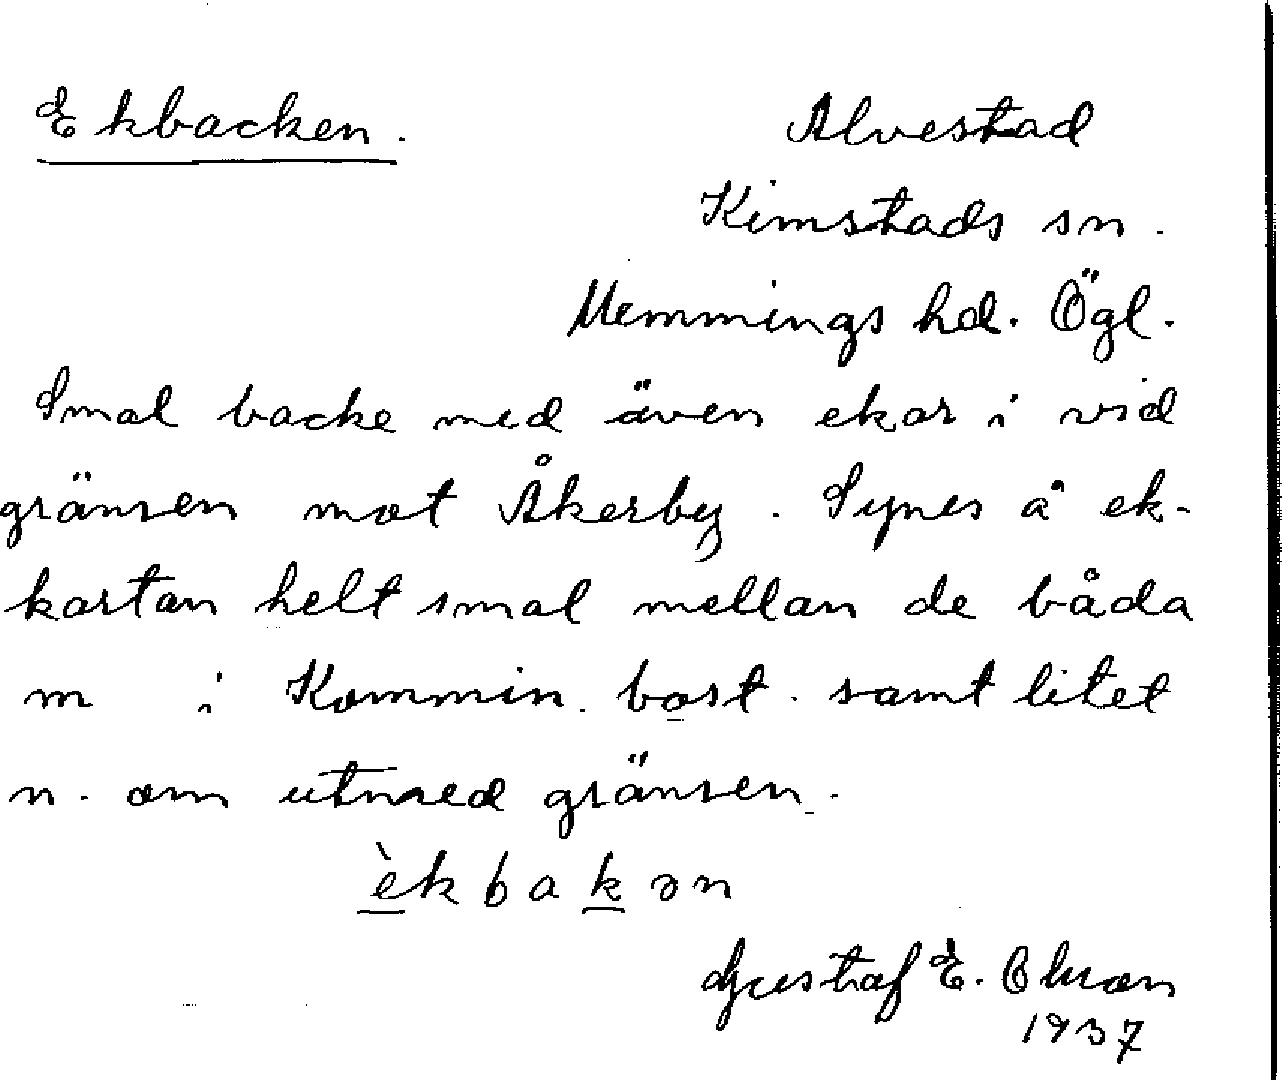 Ekbacken. Alvestad
Kimstads sn.
Memmings hd. Ögl.
Smal backe med även ekar i vid
gränsen mot Åkerby. Synes å ek-
kartan helt smal mellan de båda
m i Kommin. bost. samt litet
n. om gränsen.
èkbakən
Gustaf E. Olson
1937